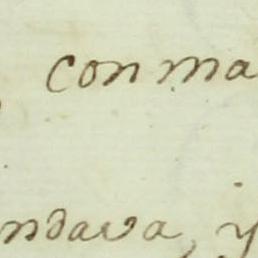 conma
ndava, y